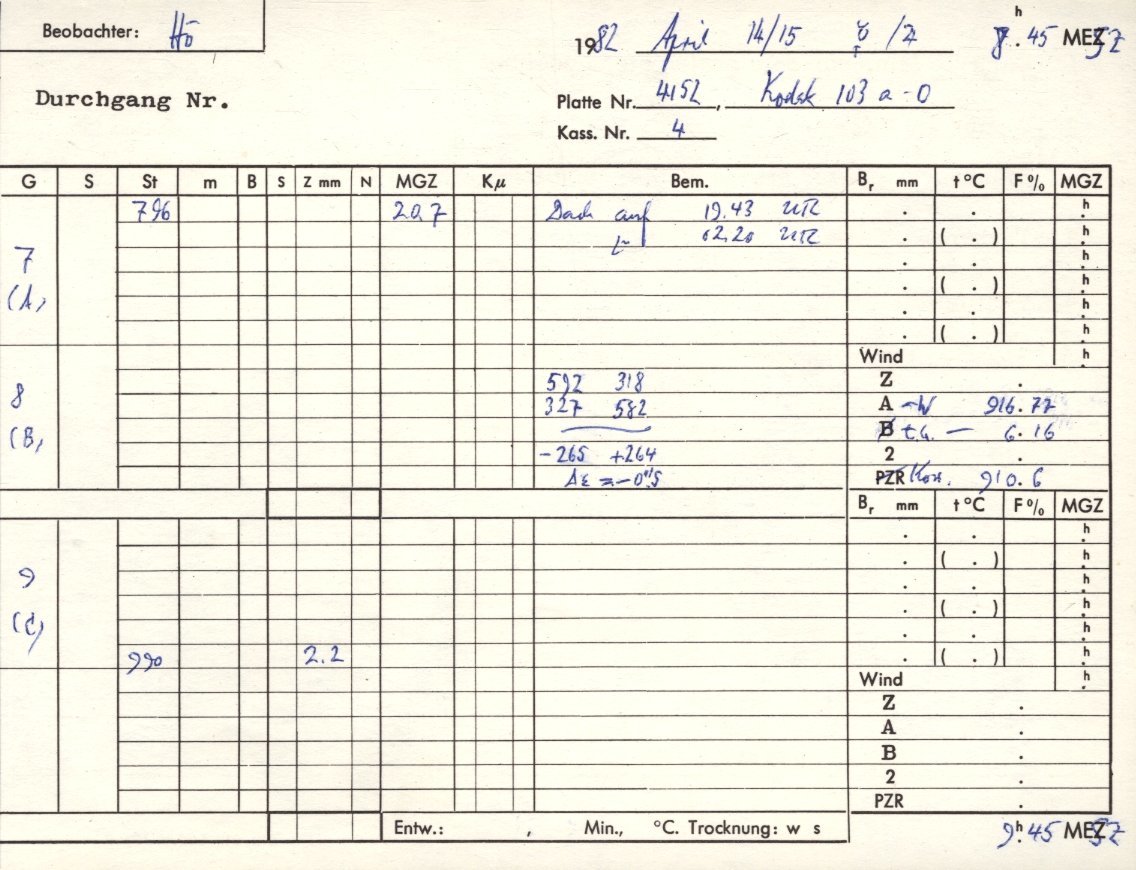 Beobachter: Hö
1982 April 14/15 ☿/♃ 8h.45 MESZ
Durchgang Nr.
Platte Nr. 4152, Kodak 103 a-O
Kass. Nr. 4
G S St m B S Z mm N MGZ Kμ Bem. Br mm t °C F % MGZ
796 20.7 Dach auf 19.43 . . h
02.20 . ( . ) h
7 . . h
(A) . ( . ) h
. . h
. ( . ) h
Wind h
592 318 Z .
8 327 582 A -W 916.77
(B) B 6.16
-265 +264 2 .
Δε = -0".5 PZR Korr. 910.6
Br mm t °C F % MGZ
. . h
. ( . ) h
9 . . h
. ( . ) h
(C) . . h
990 2.2 . ( . ) h
Wind h
Z .
A .
B .
2 .
PZR .
Entw.: , Min., °C. Trocknung: w s
9h.45 MESZ